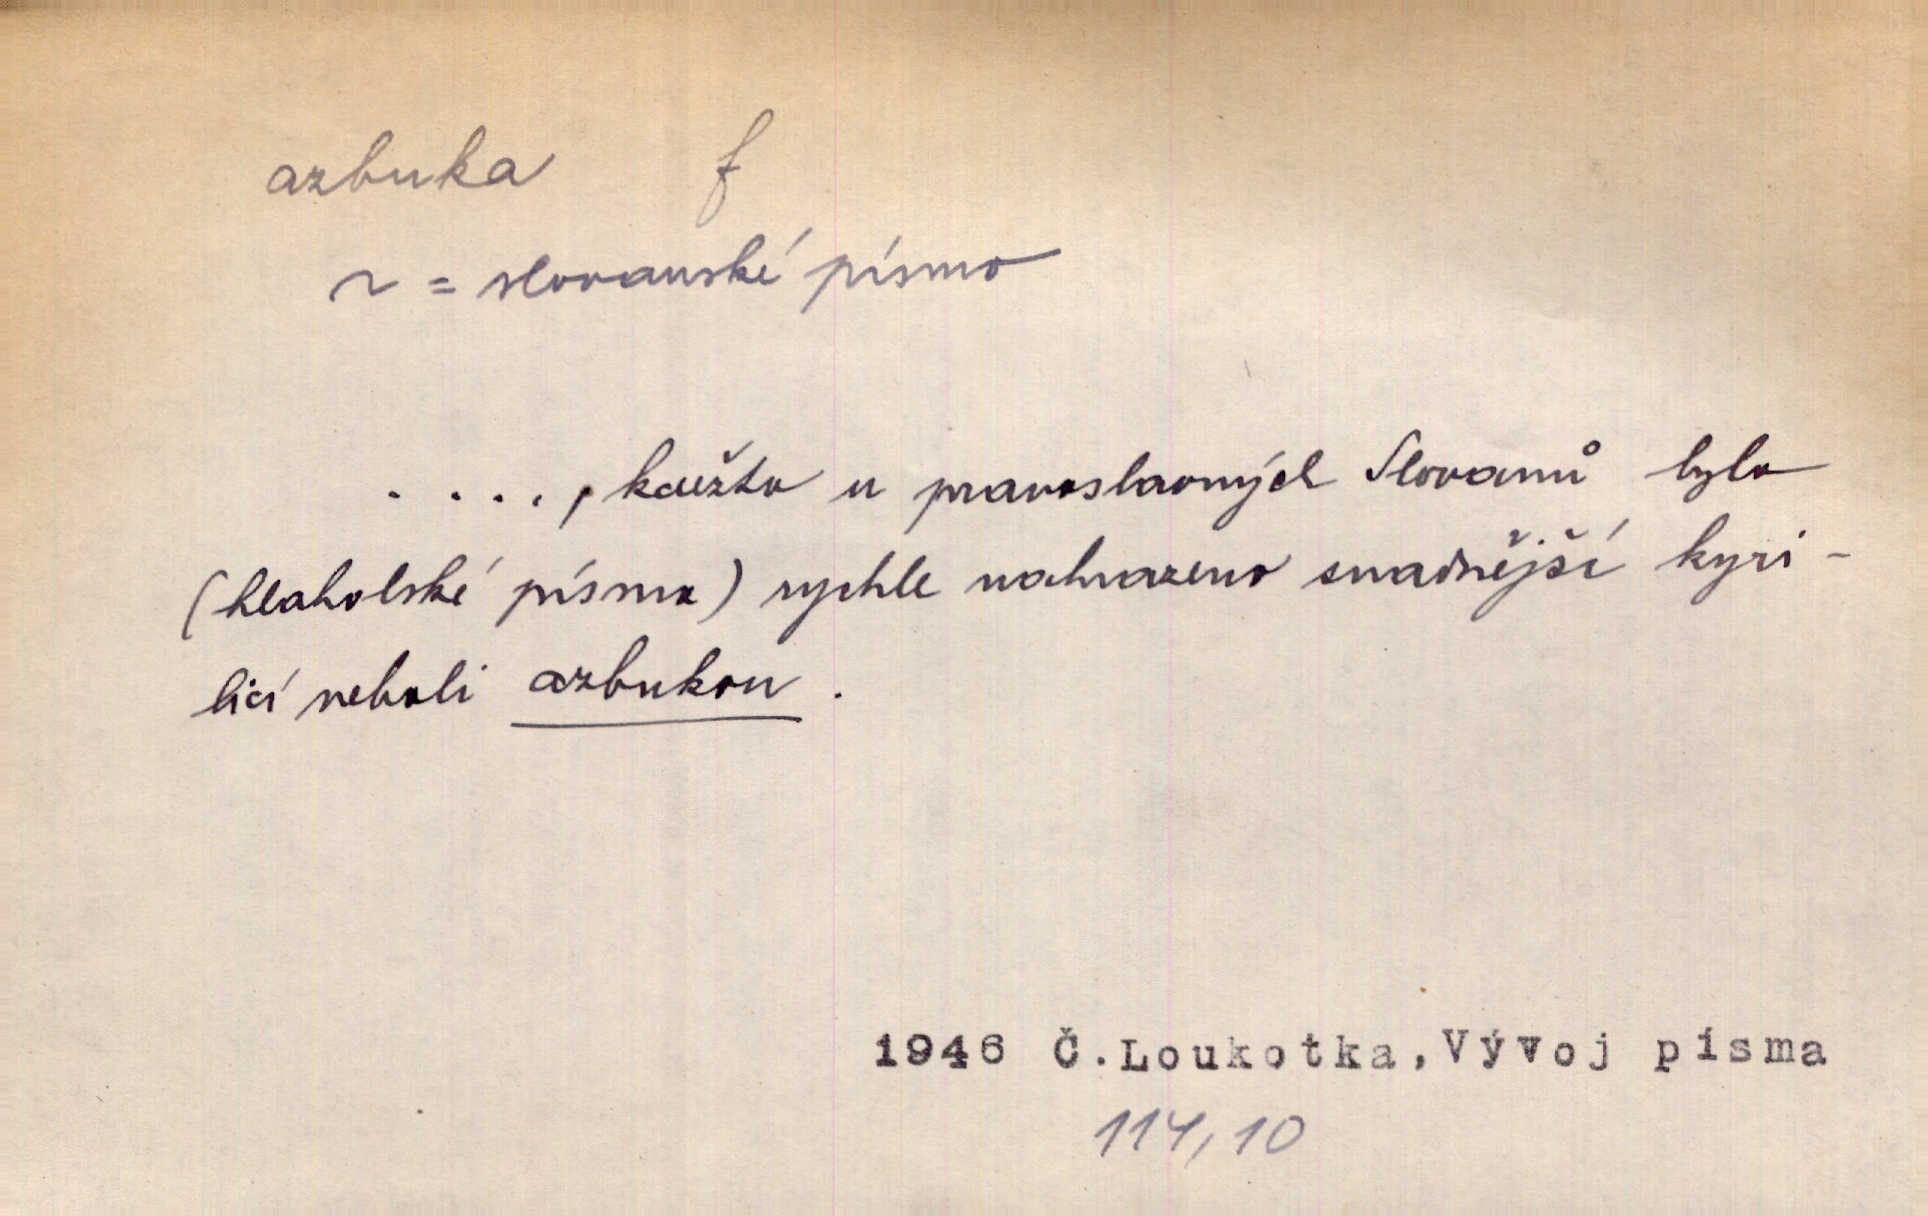 azbuka f
~ = slovanské písmo
. . . . , kdežto u pravoslavných Slovanů bylo
(hlaholské písmo) rychle nahrazeno snadnější kyri-
licí neboli azbukou.
1946 Č.Loukotka, Vývoj písma
114, 10